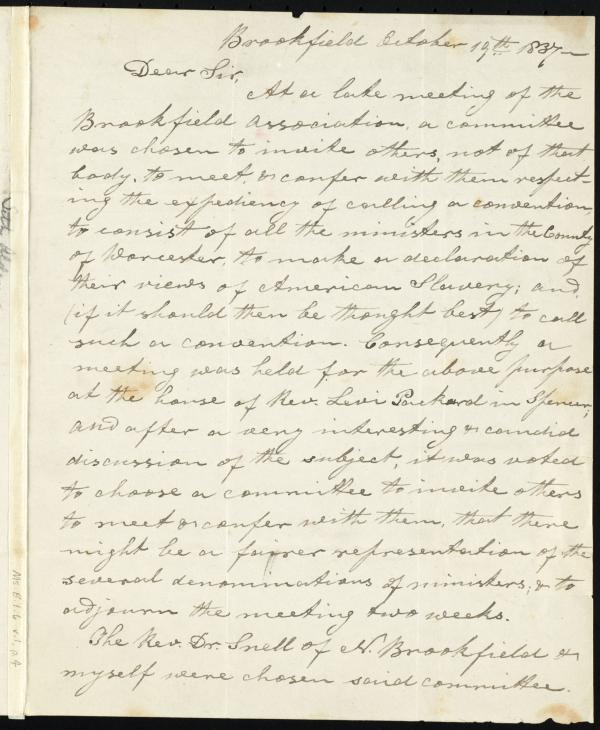 Brookfield October 19th 1837—
Dear Sir,
At a late meeting of the
Brookfield Association, a committee
was chosen to invite others, not of that
body, to meet & confer with them respect-
ing the expediency of calling a convention,
to consist of all the ministers in the County
of Worcester, to make a declaration of
their views of American Slavery; and,
(if it should then be thought best) to call
such a convention. Consequently a
meeting was held for the above purpose
at the house of Rev. Levi Packard in Spencer;
and after a very interesting & candid
discussion of the subject, it was voted
to choose a committee to invite others
to meet & confer with them, that there
might be a fairer representation of the
several denominations of ministers; & to
adjourn the meeting two weeks.
The Rev. Dr. Snell of N. Brookfield &
myself were chosen said committee.
Ms. B.1.6 v.1, p.4